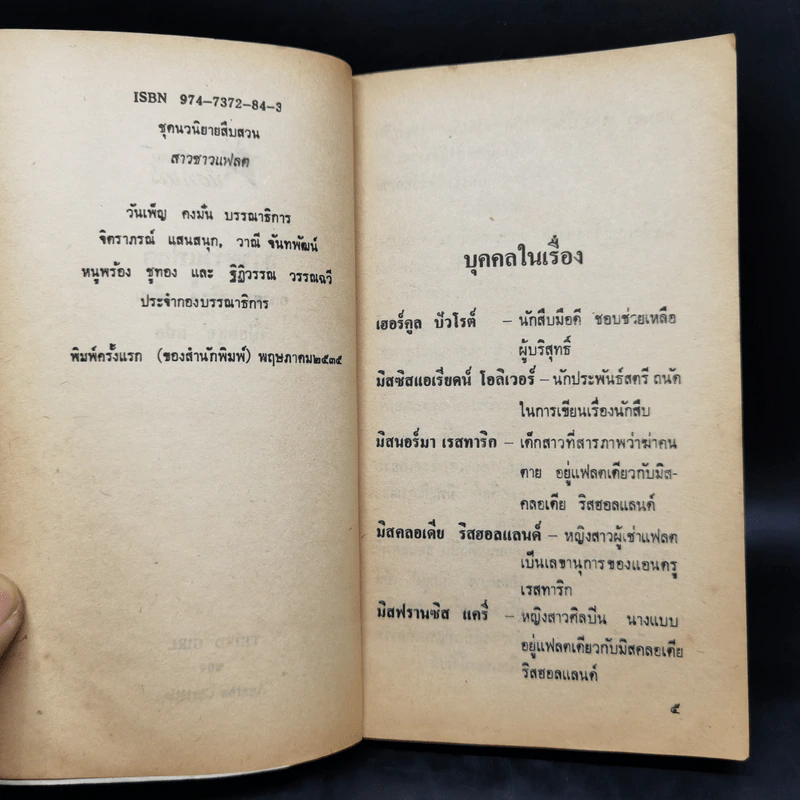 ISBN 974-7372-84-3
ชุดนวนิยายสืบสวน
สาวชาวแฟลต
วันเพ็ญ คงมั่น บรรณาธิการ
จิตราภรณ์ แสนสนุก, วาณี จันทพัฒน์
หนูพร้อง ชูทอง และ ฐิฏิวรรณ วรรณฉวี
ประจำกองบรรณาธิการ
พิมพ์ครั้งแรก (ของสำนักพิมพ์) พฤษภาคม๒๕๓๕
บุคคลในเรื่อง
เฮอร์คูล ปัวโรต์ – นักสืบมือดี ชอบช่วยเหลือ
ผู้บริสุทธิ์
มิสซิสแอเรียดน์ โอลิเวอร์ – นักประพันธ์สตรี ถนัด
ในการเขียนเรื่องนักสืบ
มิสนอร์มา เรสทาริก – เด็กสาวที่สารภาพว่าฆ่าคน
ตาย อยู่แฟลตเดียวกับมิส-
คลอเดีย ริสฮอลแลนด์
มิสคลอเดีย ริสฮอลแลนด์ – หญิงสาวผู้เช่าแฟลต
เป็นเลขานุการของแอนดรู
เรสทาริก
มิสฟรานซิส แครี่ – หญิงสาวศิลปิน นางแบบ
อยู่แฟลตเดียวกับมิสคลอเดีย
ริสฮอลแลนด์
๕